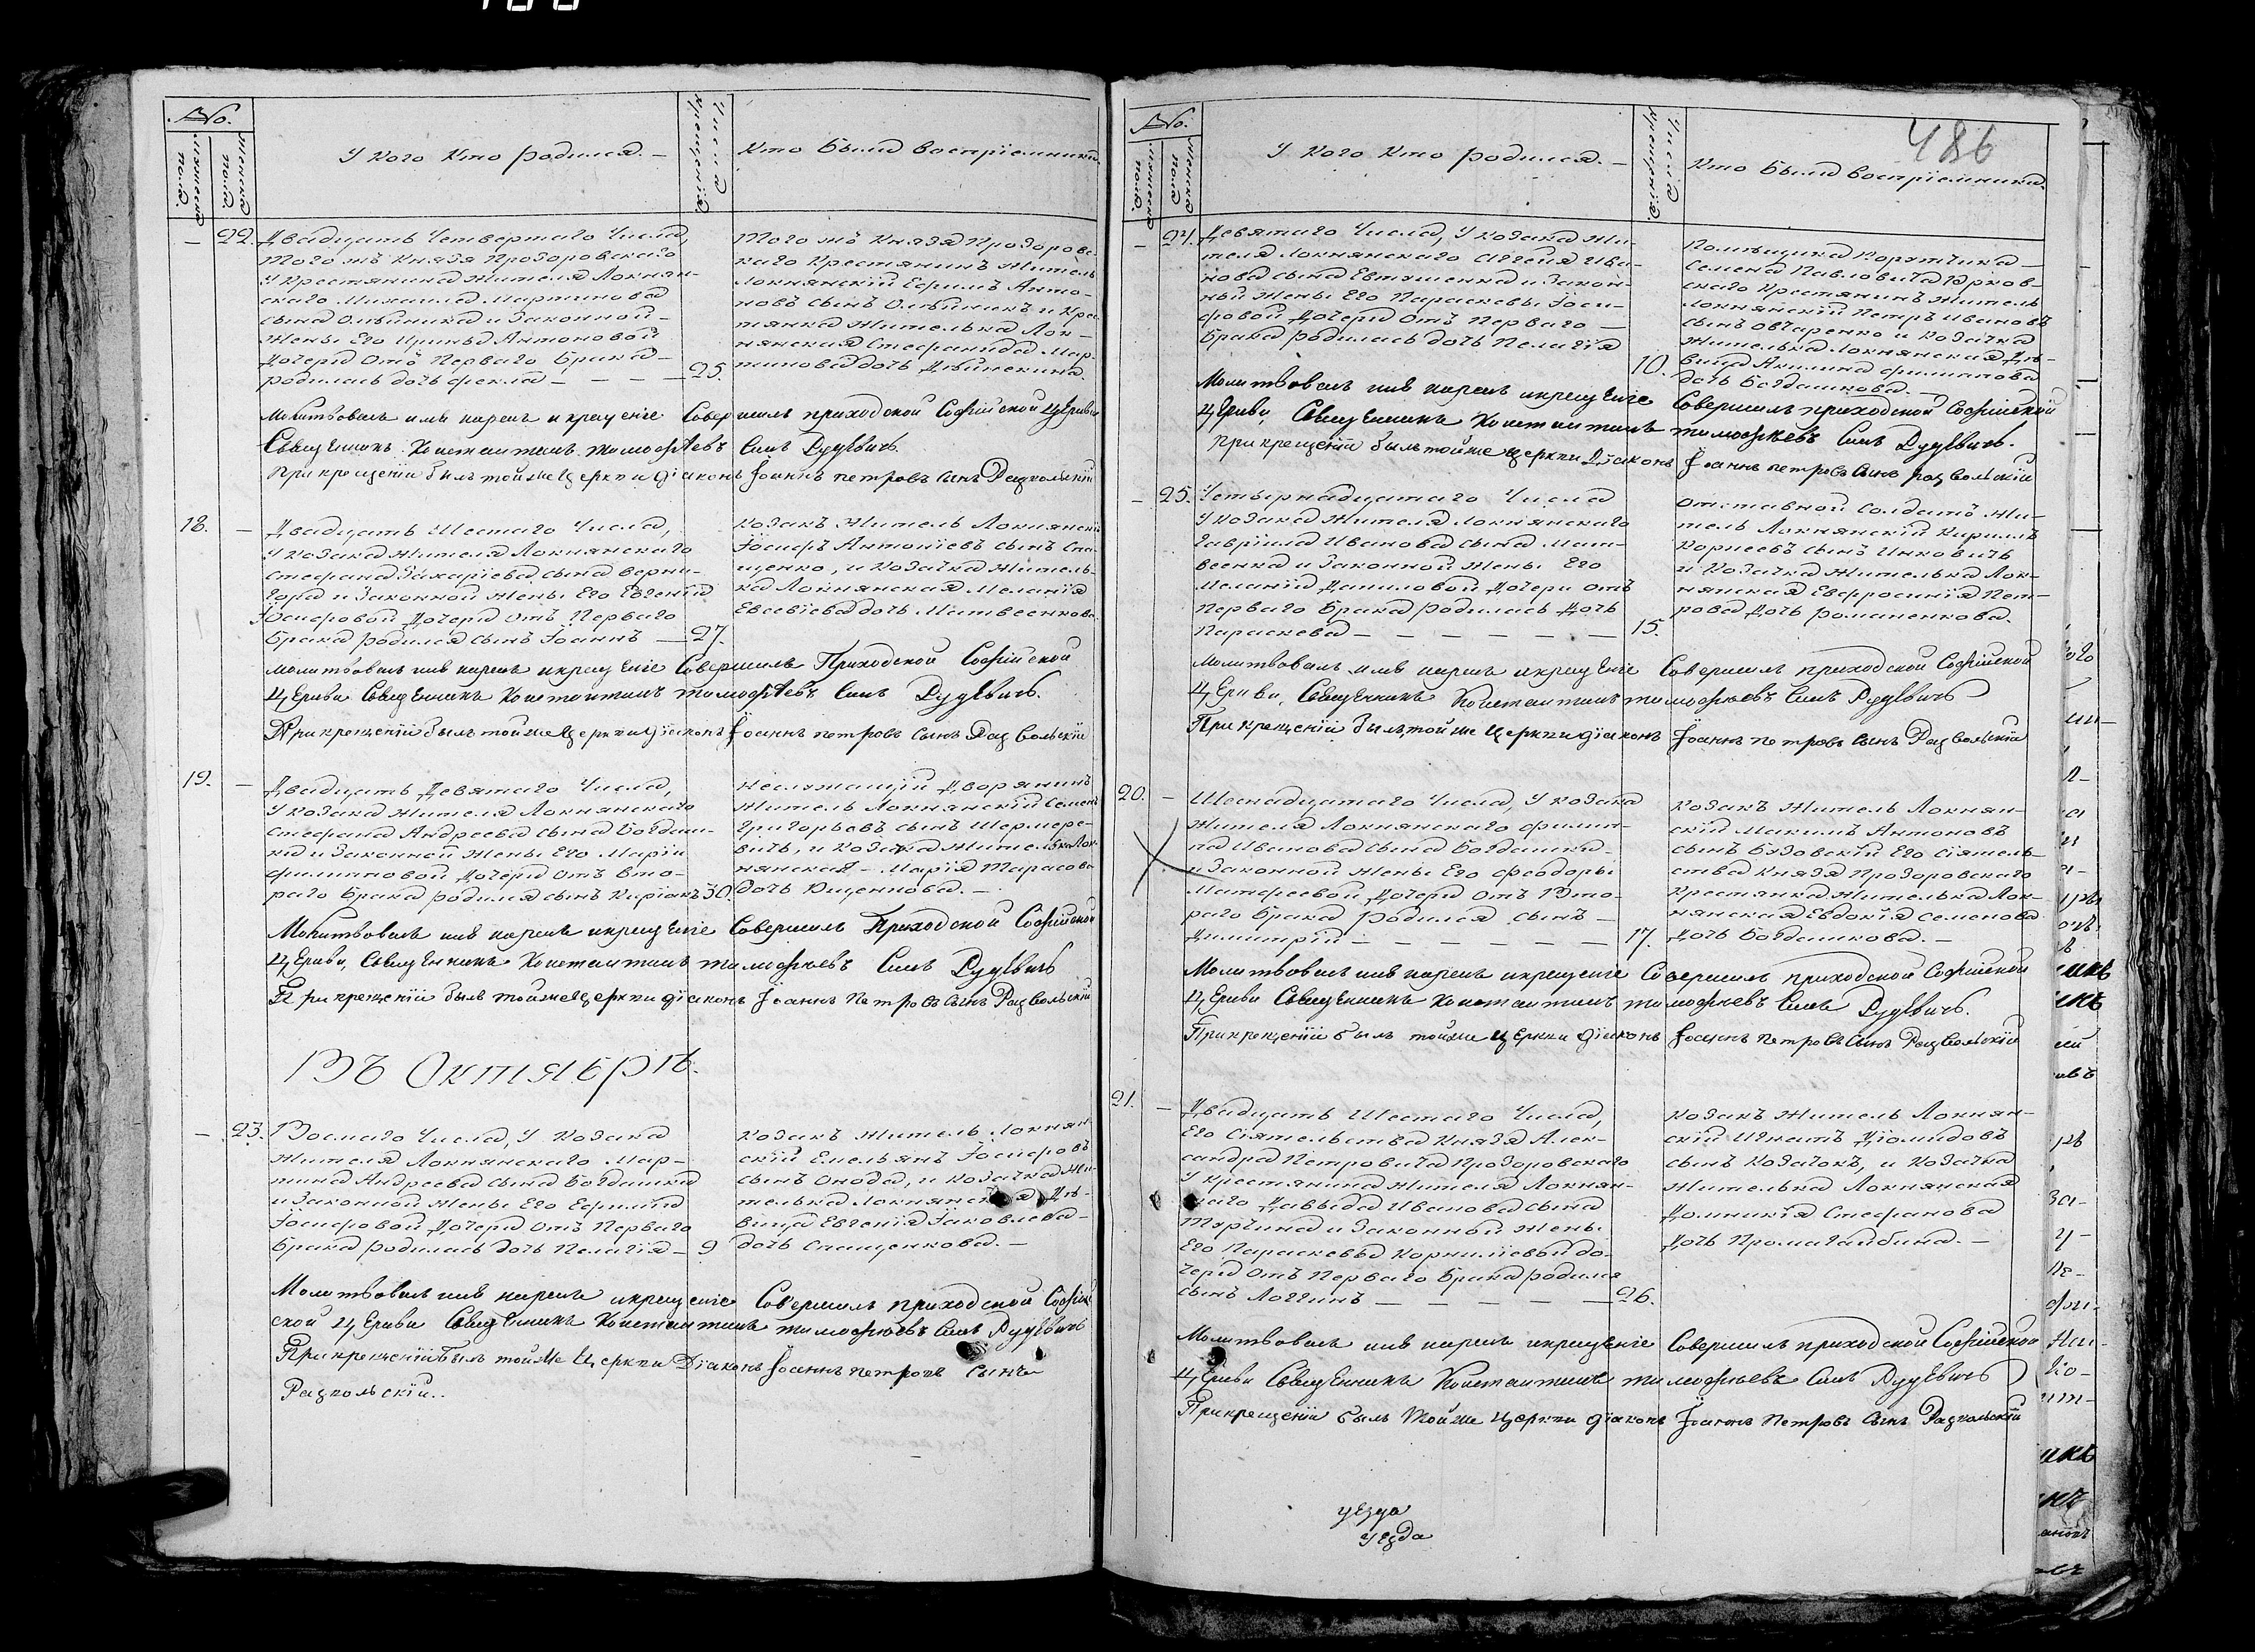 №.
Мужеска пола.
Женска пола.
У кого кто родился. —
Числа крещенія.
Кто были воспріемники.
— 22. Двадцать Четвертаго Числа,
Того жъ Князя Прозоровскаго
У Крестянина Жителя Локнян-
скаго Михаила Мартинова
сына Олѣйника и Законной
Жены Его Ирины Антоновой
Дочери Отъ Перваго Брака —
родилась дочь Фекла — — — — 25.
Того жъ Князя Прозоров-
скаго Крестянинъ Житель
Локнянскій Ефимъ Анто-
новъ сынъ Олѣйникъ и Крес-
тянка Жителька Лок-
нянская Стефанида Мар-
тинова дочь
Молитвовалъ имя нарекъ и крещеніе Совершилъ приходской Софійской Церкви
Священникъ Константинъ Тимофѣевъ Сынъ
При крещеніи былъ тойже Церкви діаконъ Іоаннъ Петровъ Сынъ
18. — Двадцать Шестаго Числа,
У Козака Жителя Локнянскаго
Стефана Захаріева сына Верни-
гора и Законной Жены Его Евгеніи
Іосифовой Дочери Отъ Перваго
Брака родился сынъ Іоаннъ — 27.
Козакъ Житель Локнянскій
Іосифъ Антоніевъ сынъ Спа-
щенко, и Козачка Житель-
ка Локнянская Меланія
Евсевіева дочь Матвеенкова
Молитвовалъ имя нарекъ и крещеніе Совершилъ Приходской Софійской
Церкви Священникъ Константинъ Тимофѣевъ Сынъ
При крещеніи былъ тойже Церкви діаконъ Іоаннъ Петровъ Сынъ
19. — Двадцать Девятаго Числа,
У Козака Жителя Локнянскаго
Стефана Андреева сына Богдаш-
ки и Законной Жены Его Маріи
Филипповой Дочери Отъ Вто-
раго Брака родился сынъ Киріакъ 30.
Неслужащій Дворянинъ
Житель Локнянскій Семенъ
Григорьевъ сынъ Шермере-
вичъ, и Козачка Жителька Лок-
нянская — Марія Тарасова
дочь Ющенкова. —
Молитвовалъ имя нарекъ и крещеніе Совершилъ Приходской Софійской
Церкви, Священникъ Константинъ Тимофѣевъ Сынъ
При крещеніи былъ тойже Церкви діаконъ Іоаннъ Петровъ Сынъ
Въ Октябрѣ.
— 23. Восмаго Числа, У Козака
Жителя Локнянскаго Мар-
тина Андреева сына Богдашка
и Законной Жены Его Ефиміи
Іосифовой Дочери Отъ Перваго
Брака родилась дочь Пелагія — 9
Козакъ Житель Локнян-
скій Емельянъ Іосифовъ
сынъ Онода, и Козачка Жи-
телька Локнянская Дѣ-
вица Евгенія Іаковлева
дочь Спащенкова. —
Молитвовалъ имя нарекъ и крещеніе Совершилъ приходской Софій-
ской Церкви Священникъ Константинъ Тимофѣевъ Сынъ
При крещеніи былъ тойже Церкви Діаконъ Іоаннъ Петровъ Сынъ
486
№.
Мужеска пола.
Женска пола
У кого кто родился. —
Числа крещенія.
Кто были воспріемники.
— 24. Девятаго Числа, У Козака Жи-
теля Локнянскаго Аггея Ива-
нова сына Евтушенка и Закон-
ной Жены Его Параскевы Іоси-
фовой Дочери Отъ Перваго —
Брака родилась дочь Пелагія 10.
Помѣщика Поручика
Семена Павловича Юрков-
скаго Крестянинъ Житель
Локнянскій Петръ Ивановъ
сынъ Овчаренко и Козачка
Жителька Локнянская Дѣ-
вица Акилина Филипова
дочь Богдашкова. —
Молитвовалъ имя нарекъ и крещеніе Совершилъ приходской Софійской
Церкви, Священникъ Константинъ Тимофѣевъ Сынъ
При крещеніи былъ тойже церкви Діаконъ Іоаннъ Петровъ Сынъ
— 25. Четырнадцатаго Числа
У Козака Жителя Локнянскаго
Гавріила Иванова сына Мат-
веенка и Законной Жены Его
Меланіи Даниловой Дочери отъ
Перваго Брака родилась Дочь
Параскева — — — — — — 15.
Отставной Солдатъ Жи-
тель Локнянскій Кириллъ
Корнеевъ сынъ Инковичъ
и Козачка Жителька Лок-
нянская Евфросинія Пет-
рова Дочь Романенкова.
Молитвовалъ имя нарекъ и крещеніе Совершилъ приходской Софійской
Церкви, Священникъ Константинъ Тимофѣевъ Сынъ
При крещеніи былъ тойже Церкви діаконъ Іоаннъ Петровъ Сынъ
20. — Шеснадцатаго Числа, У Козака
Жителя Локнянскаго Филип-
па Иванова сына Богдашка
и Законной Жены Его Феодоры
Матфеевой Дочери Отъ Вто-
раго Брака родился сынъ —
Димитрій — — — — — — 17.
Козакъ Житель Локнян-
скій Максимъ Антоновъ
сынъ Будовскій Его Сіятель-
ства Князя Прозоровскаго
Крестянка Жителька Лок-
нянская Евдокія Семенова
Дочь Богдашкова. —
Молитвовалъ имя нарекъ и крещеніе Совершилъ приходской Софійской
Церкви Священникъ Константинъ Тимофѣевъ Сынъ
При крещеніи былъ тойже Церкви діаконъ Іоаннъ Петровъ Сынъ
21. — Двадцать Шестаго Числа,
Его Сіятельства Князя Алек-
сандра Петровича Прозоровскаго
У Крестянина Жителя Локнян-
скаго Давыда Иванова сына
и Законной Жены
Его Параскевы Корниліевой до-
чери Отъ Перваго Брака родился
сынъ Логгинъ — — — — — 26.
Козакъ Житель Локнян-
скій Игнатъ Діомидовъ
сынъ Козачокъ, и Козачка
Жителька Локнянская
Домникія Стефанова
Дочь —
Молитвовалъ имя нарекъ и крещеніе Совершилъ приходской Софійской
Церкви Священникъ Константинъ Тимофѣевъ Сынъ
При крещеніи былъ тойже церкви діаконъ Іоаннъ Петровъ Сынъ
уезда
уезда